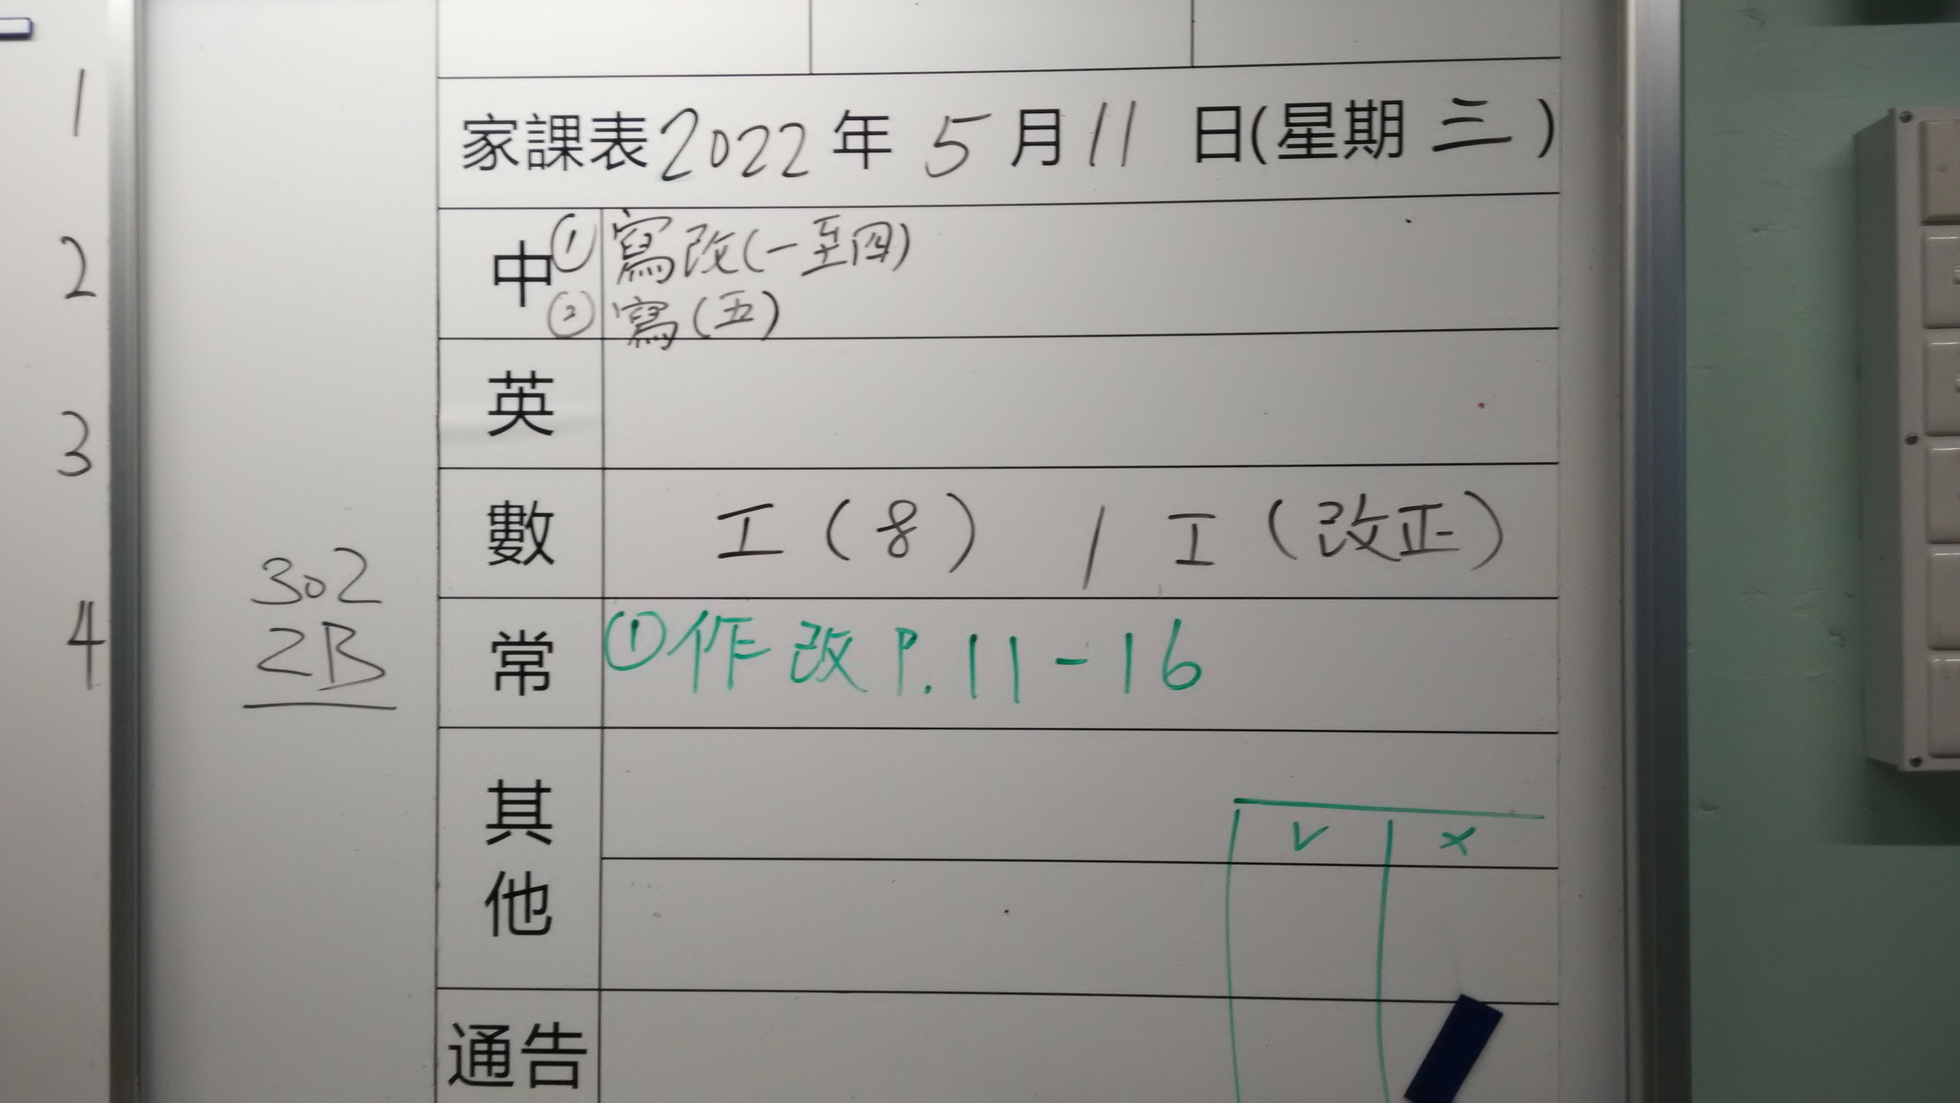 1
2
3
4
302
2B
家課表2022年5月11日(星期三)
中 ①寫改(一至四)
②寫(五)
英
數 工(8) / 工(改正)
常 ①作改P.11-16
其他
✓ ×
通告